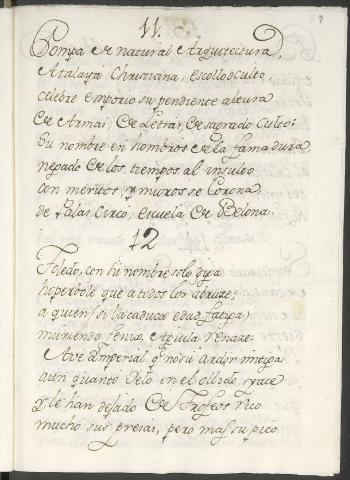 11.
Pompa de natural Arquitectura,
Atalaya Christiana, escollo oculto
celebre emporio su pendiente altura
De Armas, De Letras, De sagrado Culto:
Su nombre en hombros de la fama dura
negado de los tiempos al insulto
con meritos, y muros se Corona,
de Palas Circo, escuela De Belona.
12
Toledo, con su nombre solo
hyperbole que a todos los abraze,
a quien, si la caduca edad fatiga,
muriendo Fenix, Aguila renaze:
Ave Imperial que no su ardor mitiga
aun quanto Velo en el olbido yace
y le han dejado De Trofeos rico
mucho sus presas, pero mas su pico